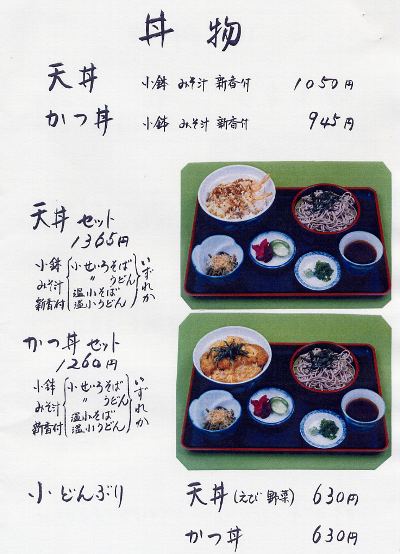 丼物
天丼 小鉢 みそ汁 新香付 1050円
かつ丼 小鉢 みそ汁 新香付 945円
天丼セット
1365円
小鉢 小せいろそば
みそ汁 〃 うどん
新香付 温小そば
温小うどん
いずれか
かつ丼セット
1260円
小鉢 小せいろそば
みそ汁 〃 うどん
新香付 温小そば
温小うどん
いずれか
小どんぶり 天丼(えび 野菜) 630円
かつ丼 630円